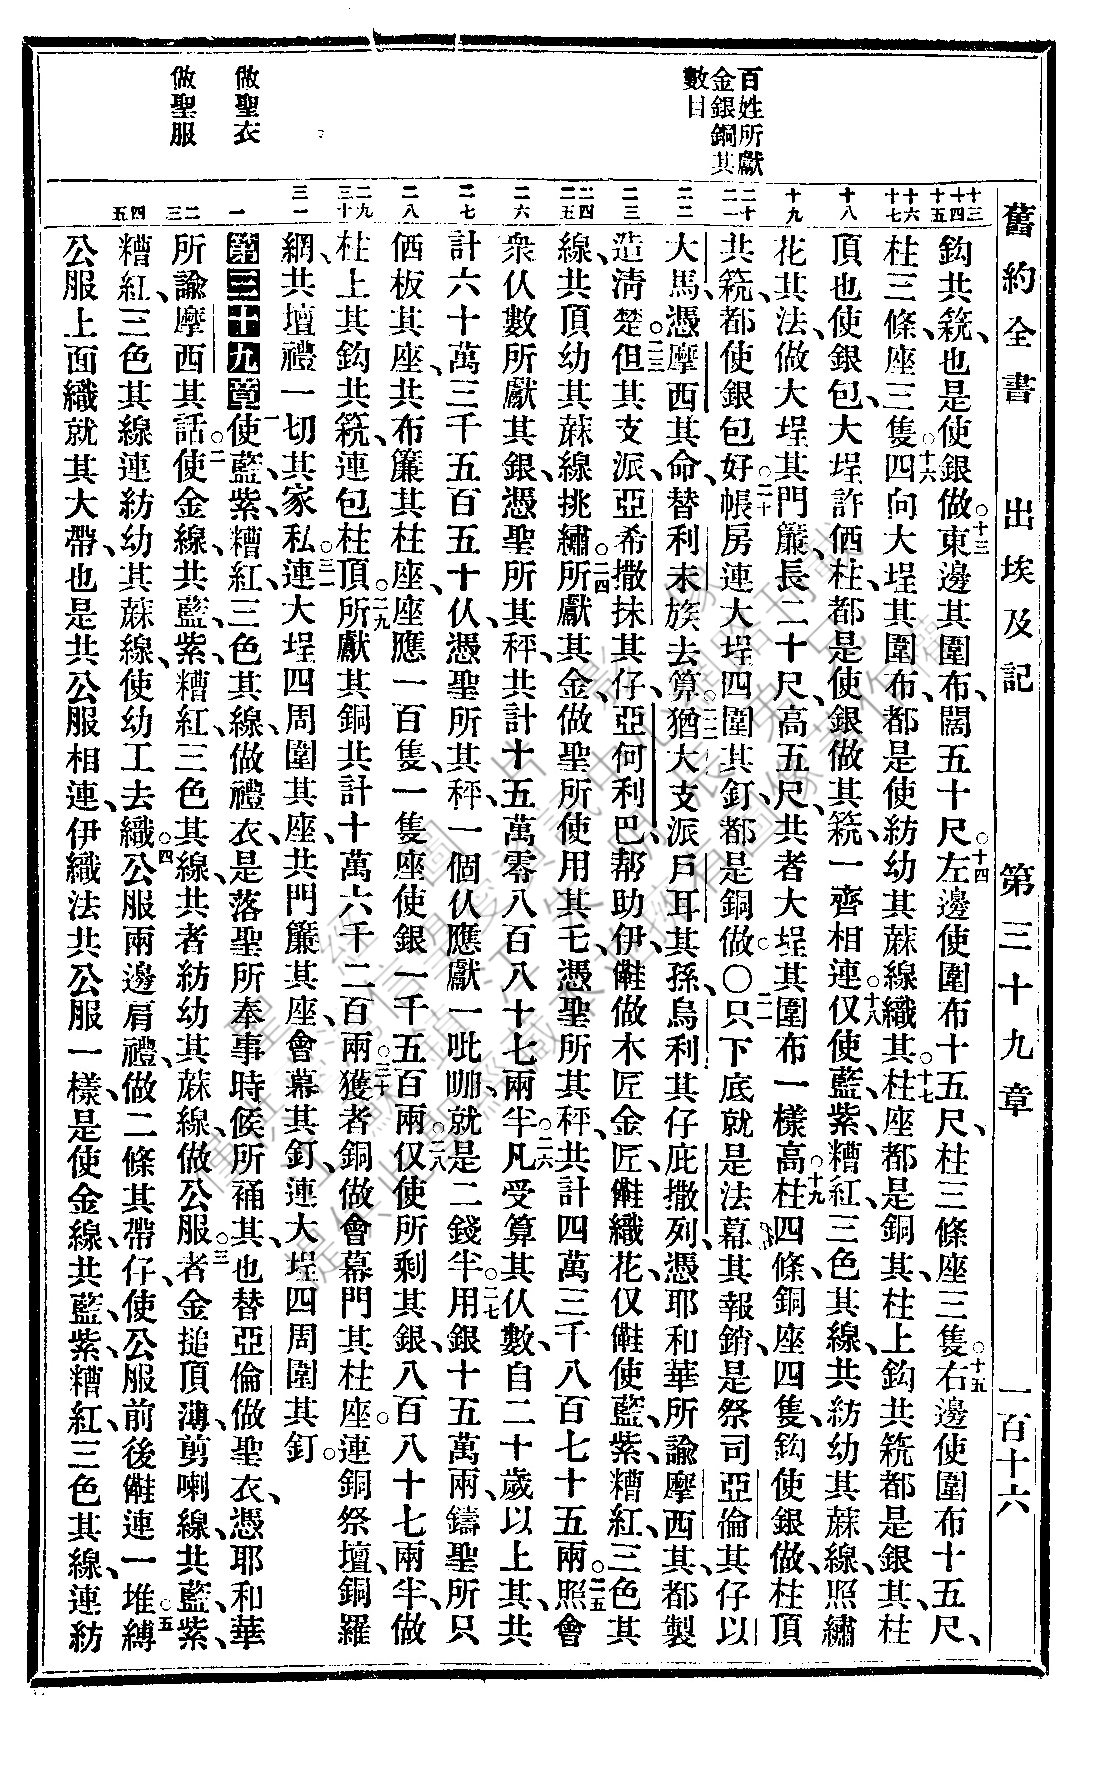 舊約全書　出埃及記　第三十九章　一百十六
百姓所獻
金銀銅其
數目
做聖衣
做聖服
鈎共𥮾、也是使銀做。十三東邊其圍布、闊五十尺。十四左邊使圍布十五尺、柱三條座三隻。十五右邊使圍布十五尺、
柱三條、座三隻。十六四向大埕其圍布、都是使紡幼其蔴線織其。十七柱座都是銅其、柱上鈎共𥮾都是銀其、柱
頂也使銀包、大埕許㑚柱、都是使銀做其𥮾一齊相連。十八仅使藍、紫、糟紅、三色其線、共紡幼其蔴線、照繡
花其法、做大埕其門簾、長二十尺、高五尺、共者大埕其圍布一樣高。十九柱四條、銅座四隻、鈎使銀做、柱頂
共𥮾、都使銀包好。二十帳房連大埕四圍其釘、都是銅做。○二一只下底就是法幕其報銷、是祭司亞倫其仔以
大馬、憑摩西其命、替利未族去算。二二猶大支派、戶耳其孫、烏利其仔庇撒列、憑耶和華所諭摩西其、都製
造清楚。二三但其支派、亞希撒抹其仔、亞何利巴、幇助伊、㒿做木匠金匠、㒿織花、仅㒿使藍、紫、糟紅、三色其
線、共頂幼其蔴線、挑繡。二四所獻其金、做聖所使用其乇、憑聖所其秤、共計四萬三千八百七十五兩。二五照會
衆仅數所獻其銀、憑聖所其秤、共計十五萬零八百八十七兩半。二六凡受算其仅數、自二十歲以上其、共
計六十萬三千五百五十仅、憑聖所其秤、一個仅應獻一吡㗎、就是二錢半。二七用銀十五萬兩、鑄聖所只
㑚板其座、共布簾其柱座、座應一百隻、一隻座使銀一千五百兩。二八仅使所剩其銀、八百八十七兩半、做
柱上其鈎共𥮾、連包柱頂。二九所獻其銅共計十萬六千二百兩。三十獲者銅做會幕門其柱座。連銅祭壇、銅羅
網、共壇禮一切其家私。三一連大埕四周圍其座、共門簾其座、會幕其釘、連大埕四周圍其釘。
第三十九章一使藍、紫、糟紅、三色其線、做禮衣、是落聖所奉事時候所䘄其、也替亞倫做聖衣、憑耶和華
所諭摩西其話。二使金線、共藍、紫、糟紅、三色其線、共者紡幼其蔴線、做公服。三者金搥頂薄、剪喇線、共藍、紫、
糟紅、三色其線、連紡幼其蔴線、使幼工去織。四公服兩邊肩禮、做二條其帶仔、使公服前後㒿連一堆縛。五
公服上面織就其大帶、也是共公服相連、伊織法共公服一樣、是使金線、共藍、紫、糟紅、三色其線、連紡